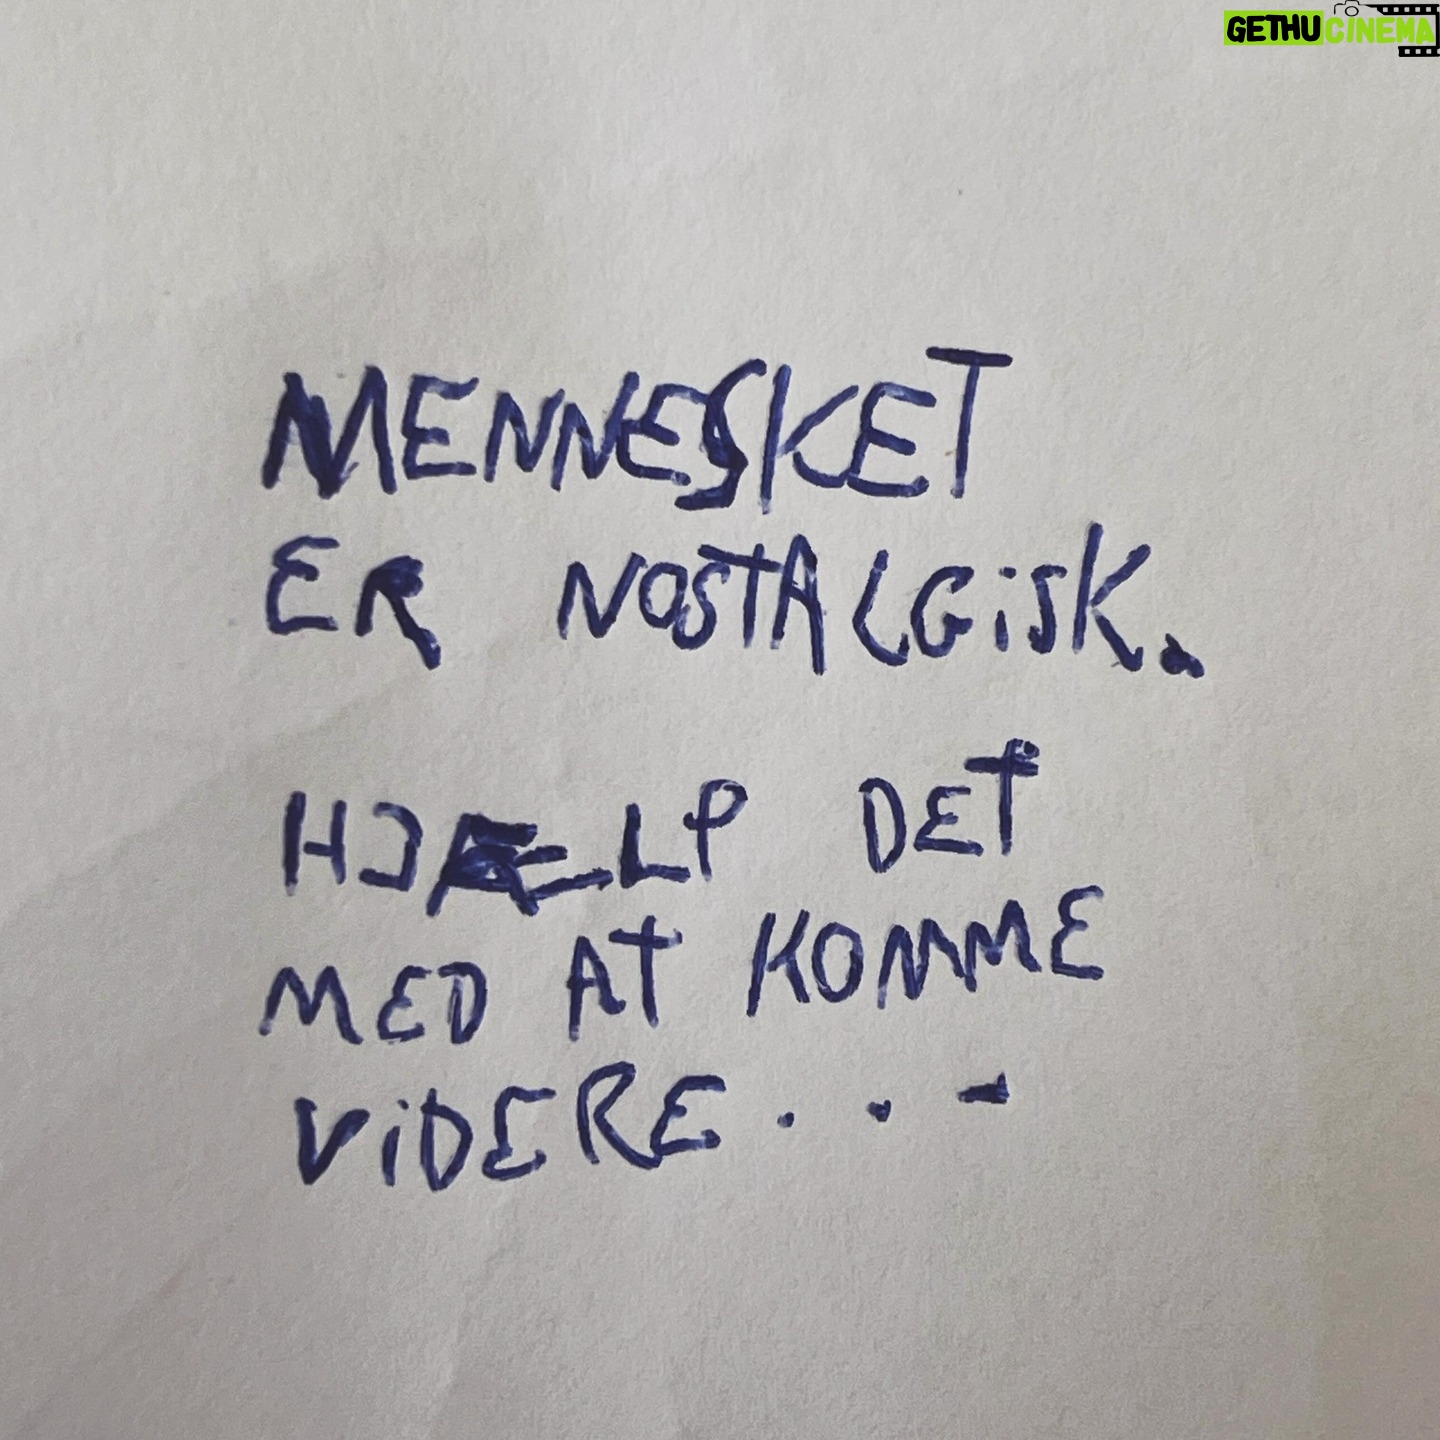 GETHUCINEMA
MENNESKET
ER NOSTALGISK.
HJÆLP DET
MED AT KOMME
VIDERE...